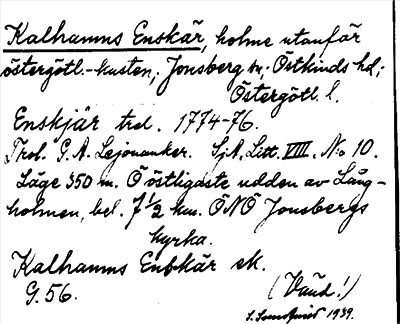 Kalhamns Enskär, holme utanför
östergötl.-kusten; Jonsberg sn; Östkinds hd;
Östergötl. l.
Enskjär trol. 1774-76.
Trol. G. A. Lejonanker. SjA, Litt. VIII. No 10.
Läge 350 m. Ö östligaste udden av Lång-
holmen, bel. 7 1/2 km. ÖNÖ Jonsbergs
kyrka.
Kalhamns Enskär ek.
G. 56.
(Väud!)
1939.